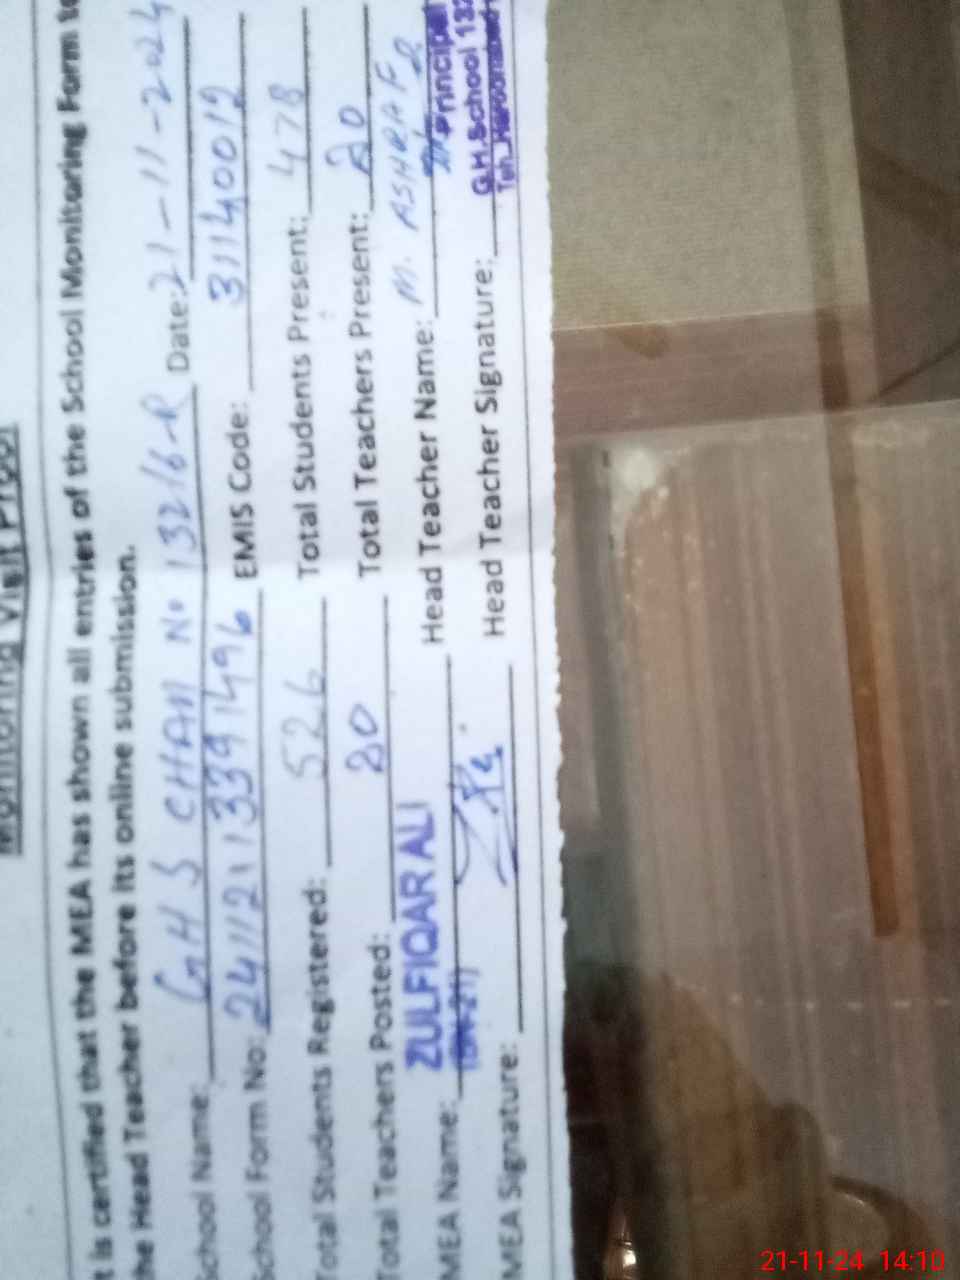 Monitoring Visit Proof
t is certified that the MEA has shown all entries of the School Monitoring Form to
he Head Teacher before its online submission.
School Name: GHS CHAK No 132/6-R Date: 21-11-2024
School Form No: 24112113391496 EMIS Code: 31140019
Total Students Registered: 526 Total Students Present: 478
Total Teachers Posted: 20 Total Teachers Present: 20
MEA Name: ZULFIQAR ALI Head Teacher Name: M. ASHRAF
Principal
MEA Signature: Head Teacher Signature:
G.H.School 132
Teh. Haroonabad
21-11-24 14:10